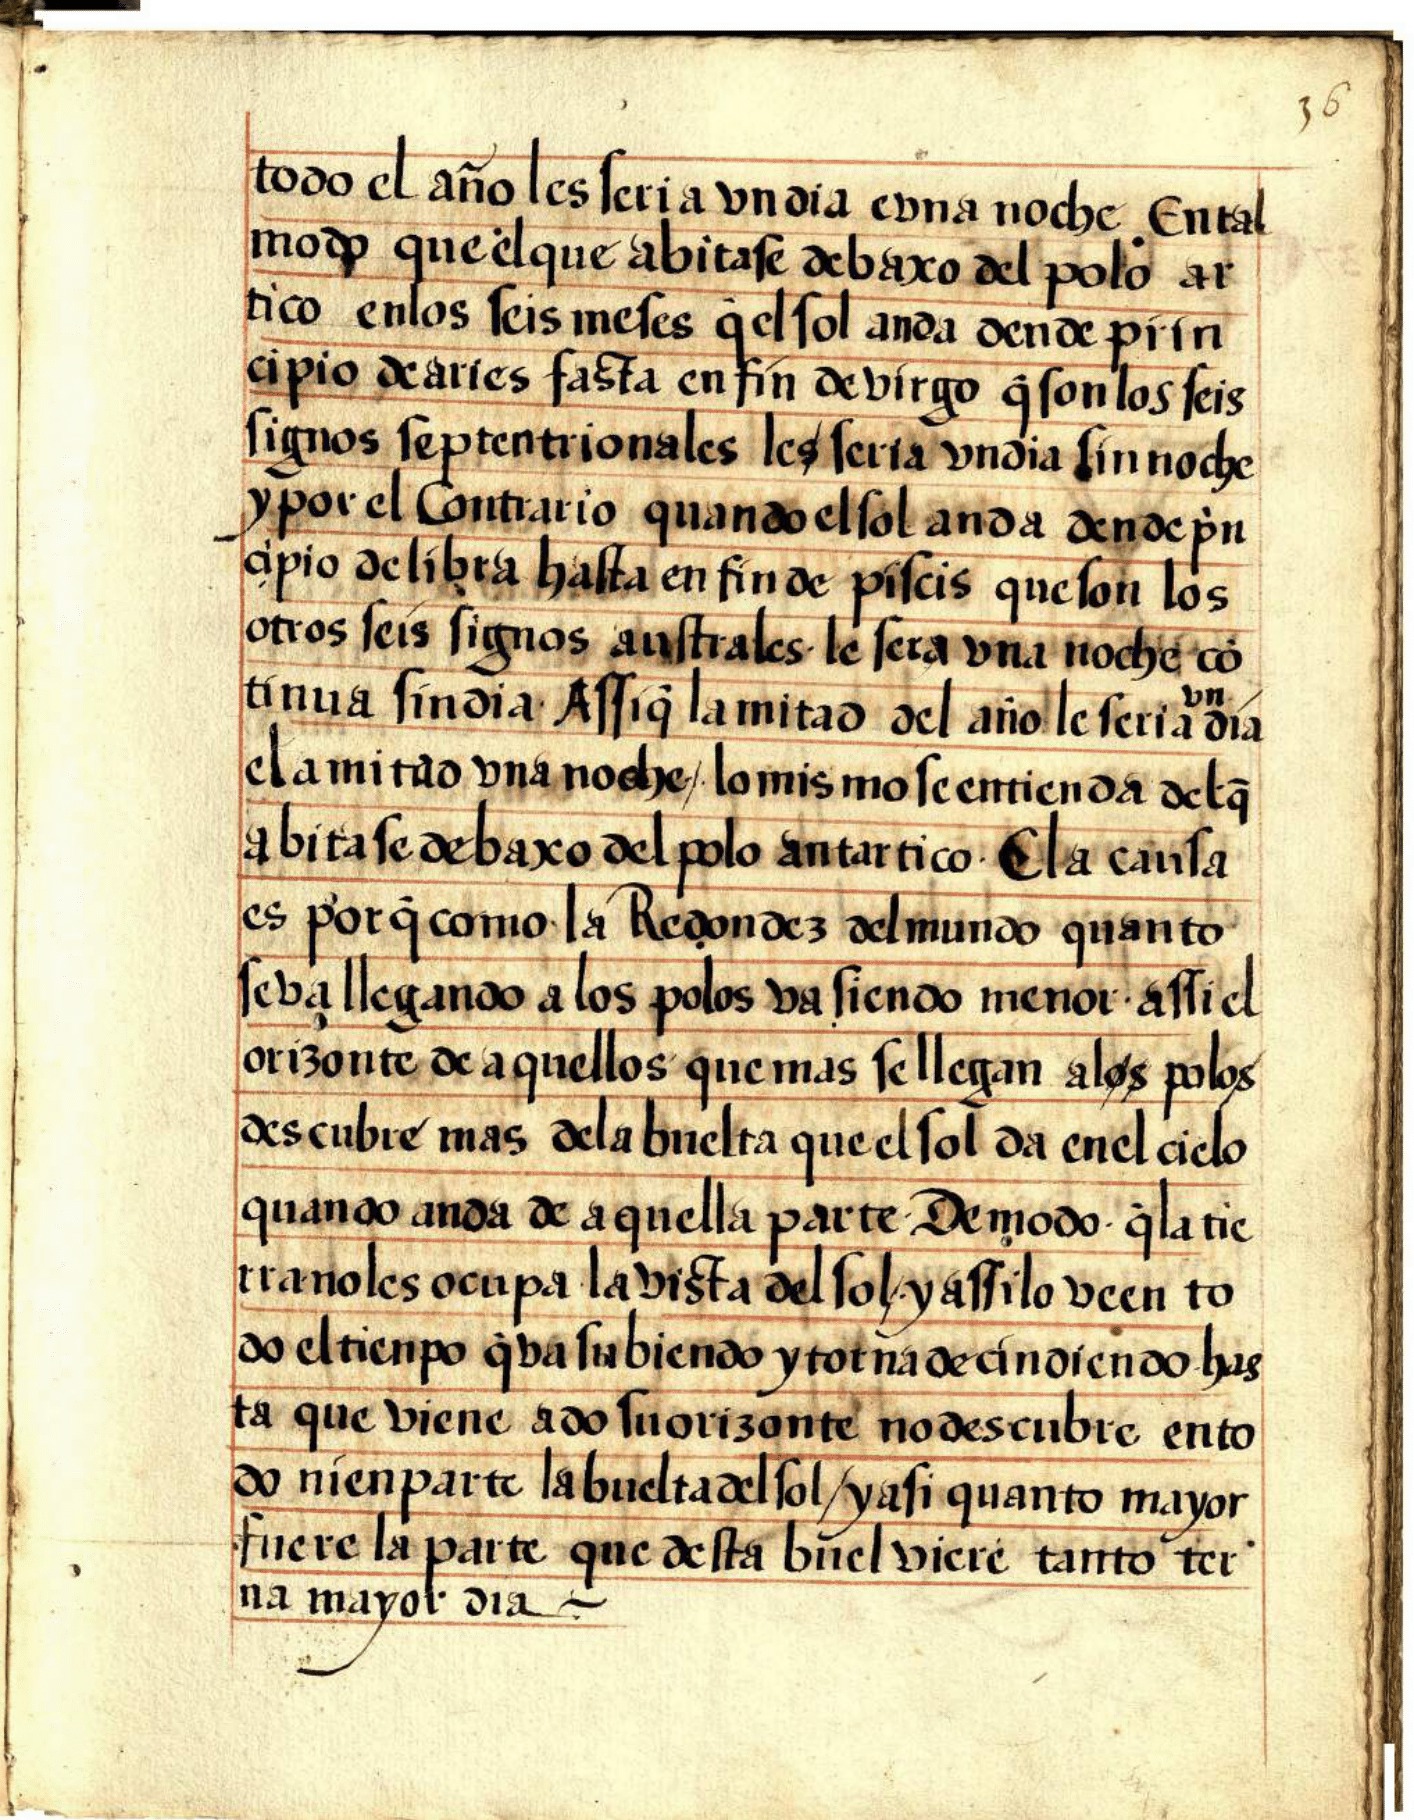 36
todo el año les seria vn dia e vna noche. En tal
modo que el que abitase debaxo del polo ar
tico en los seis meses q̃ el sol anda dende prin
cipio de aries fasta en fin de virgo q̃ son los seis
signos septentrionales les seria vn dia sin noche
y por el Contrario quando el sol anda dende pñ
cipio de libra hasta en fin de piscis que son los
otros seis signos australes. le sera vna noche cõ
tinua sin dia. Assi q̃ la mitad del año le seria vn dia
e la mitad vna noche/. lo mismo se entienda del q̃
abitase debaxo del polo antartico. E la causa
es por q̃ como la Redondez del mundo quanto
se va llegando a los polos va siendo menor. assi el
orizonte de aquellos que mas se llegan a los polos
descubre mas de la buelta que el sol da en el cielo
quando anda de aquella parte. De modo. q̃ la tie
rra no les ocupa la vista del sol/. y assi lo veen to
do el tienpo q̃ va subiendo y torna decindiendo has
ta que viene a do su orizonte no descubre en to
do ni en parte la buelta del sol/ y asi quanto mayor
fuere la parte que desta buel viere tanto ter
na mayor dia ~